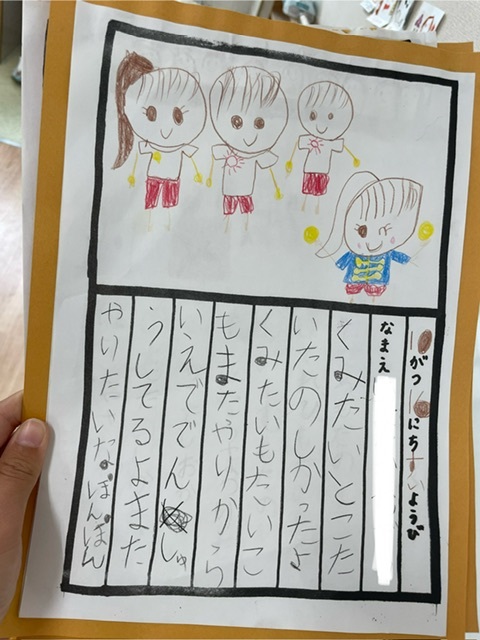 がつ にち ようび
なまえ
くみだいとこた
いたのしかったよ
くみたいもたいこ
もまたやりから
いえででんしゅ
うしてるよまた
やりたいな。ぽんぽん